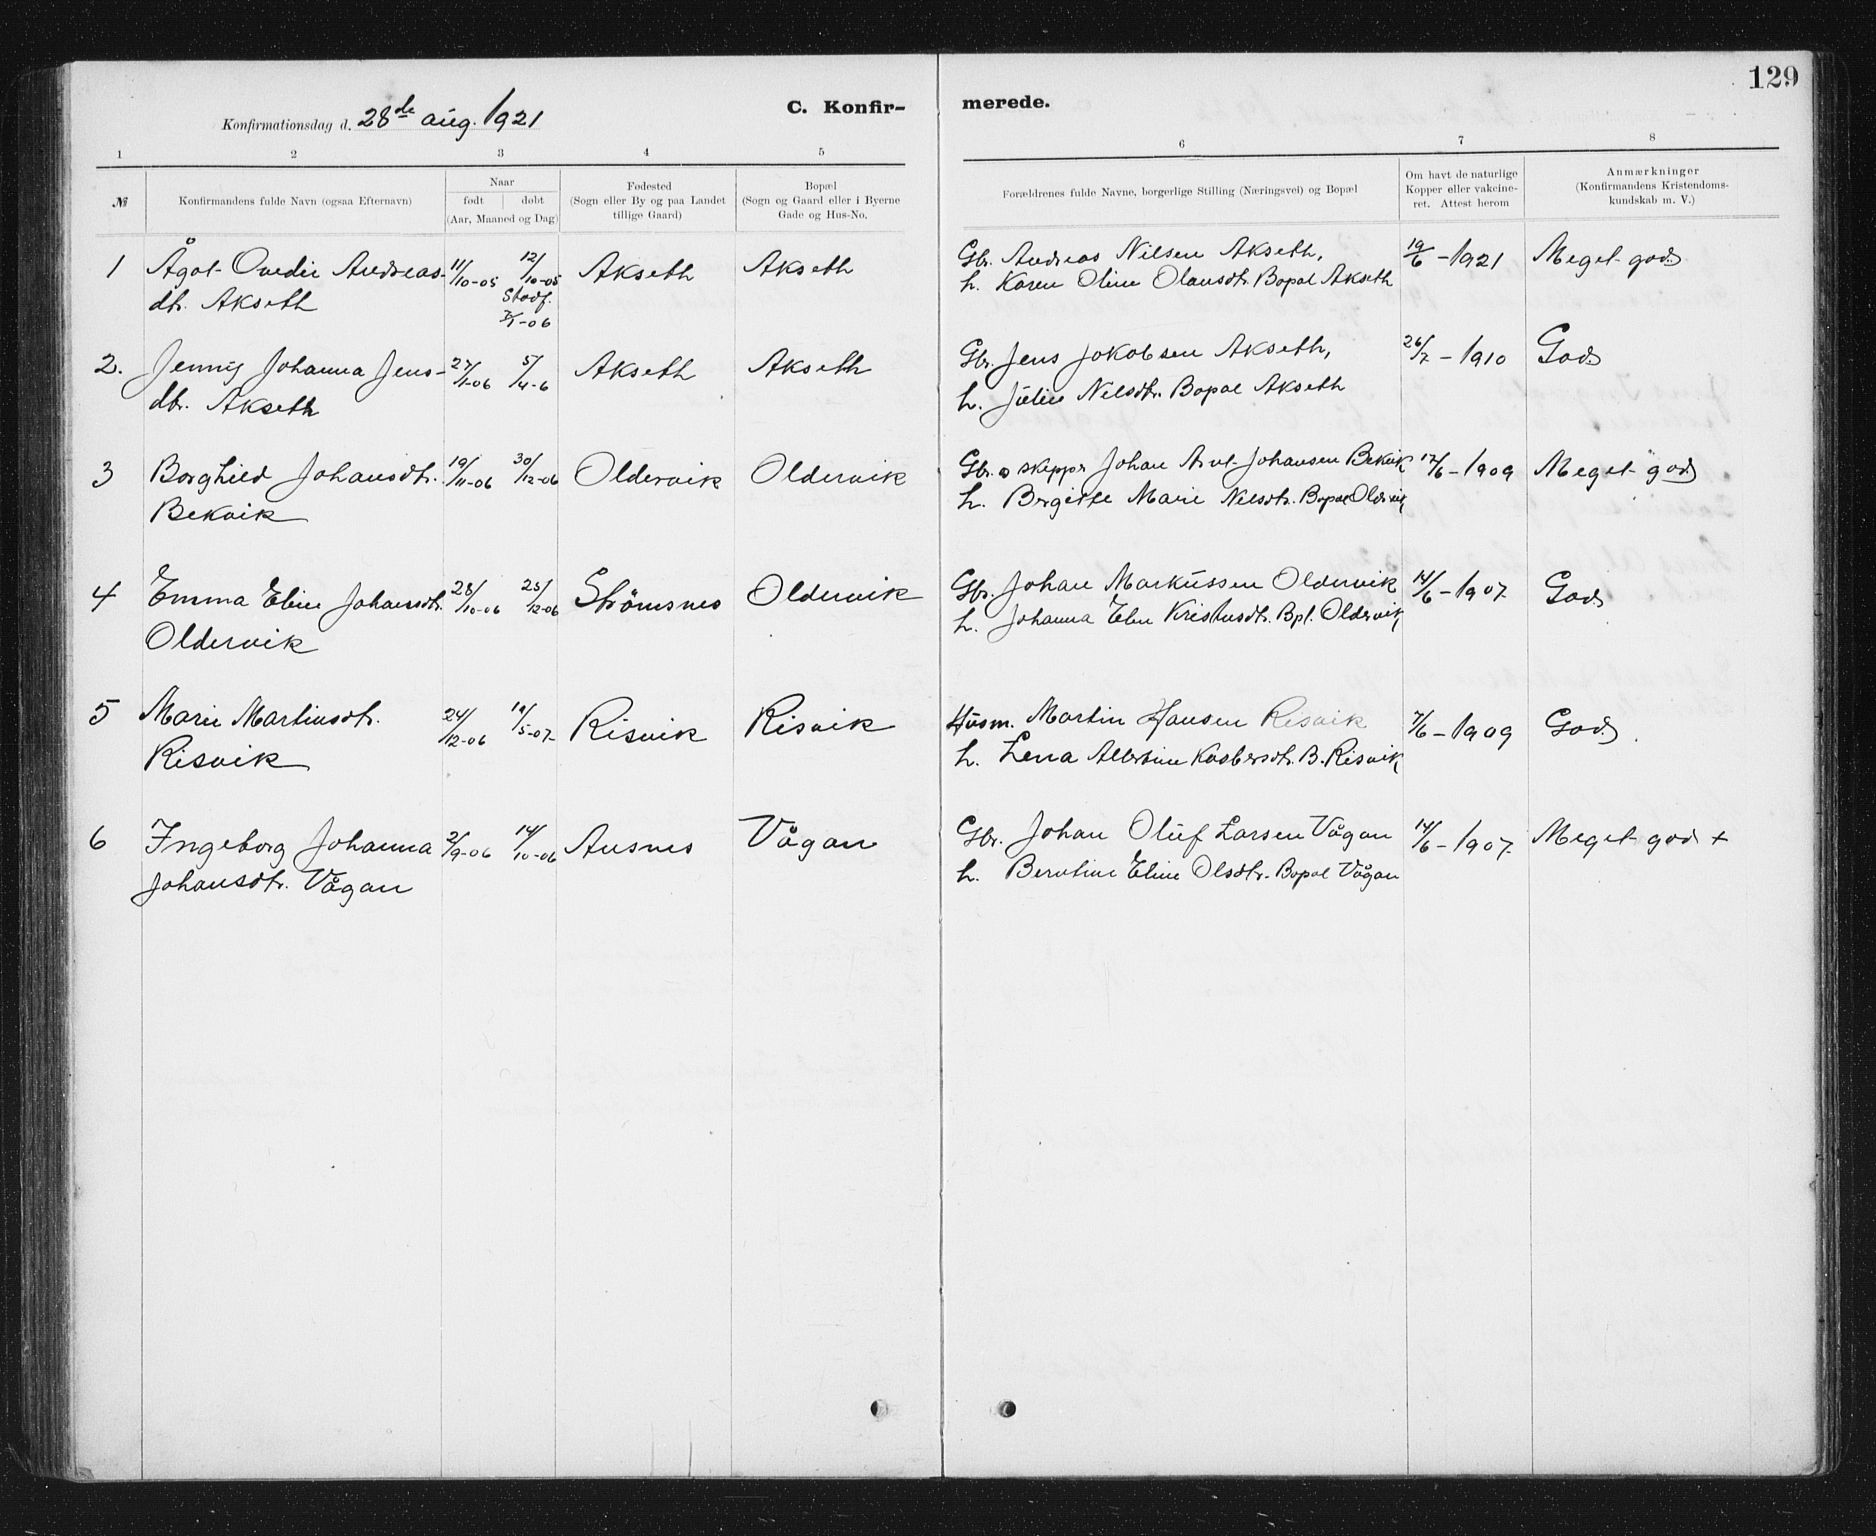 129
C. Konfir-merede.
Konfirmationsdag d. 28de aug. 1921
1 2 3 4 5 6 7 8
№
Konfirmandens fulde Navn (ogsaa Efternavn)
Naar
født | døbt
(Aar, Maaned og Dag)
Fødested
(Sogn eller By og paa Landet
tillige Gaard)
Bopæl
(Sogn og Gaard eller i Byerne
Gade og Hus-No.
Forældrenes fulde Navne, borgerlige Stilling (Næringsvei) og Bopæl
Om havt de naturlige
Kopper eller vakcine-
ret. Attest herom
Anmærkninger
(Konfirmandens Kristendoms-
kundskab m. V.)
1 Ågot Ovedie Andreas- 11/10-05 12/10-05 Akseth Akseth Gbr. Andreas Nilsen Akseth, 19/6 - 1921 Meget god
dtr. Akseth Stadf. h. Karen Oline Olausdtr. Bopæl Akseth
7/1-06
2. Jenny Johanna Jens- 27/1-06 5/4-6 Akseth Akseth Gbr. Jens Jakobsen Akseth, 26/7 - 1910 God
dtr. Akseth h. Julie Nilsdtr. Bopæl Akseth
3 Borghild Johansdtr. 19/11-06 30/12-06 Oldervik Oldervik Gbr. o skippr Johan Arnt Johansen Bekvik 17/6 - 1909 Meget god
Bekvik h. Birgitte Marie Nilsdtr. Bopæl Oldervik
4 Emma Eline Johansdtr. 28/10-06 25/12-06 Strømsnes Oldervik Gbr. Johan Markussen Oldervik 14/6 - 1907 God
Oldervik h. Johanna Elen Kristensdtr. Bpl. Oldervik
5 Marie Martinsdtr. 24/12-06 19/5-07 Risvik Risvik Husm. Martin Hansen Risvik 7/6 - 1909 God
Risvik h. Lena Albertine Kasbersdtr. B. Risvik
6 Ingeborg Johanna 2/9-06 14/10-06 Ausnes Vågan Gbr. Johan Oluf Larsen Vågan 14/6 - 1907. Meget god +
Johansdtr. Vågan h. Berntine Eline Olsdtr. Bopæl Vågan